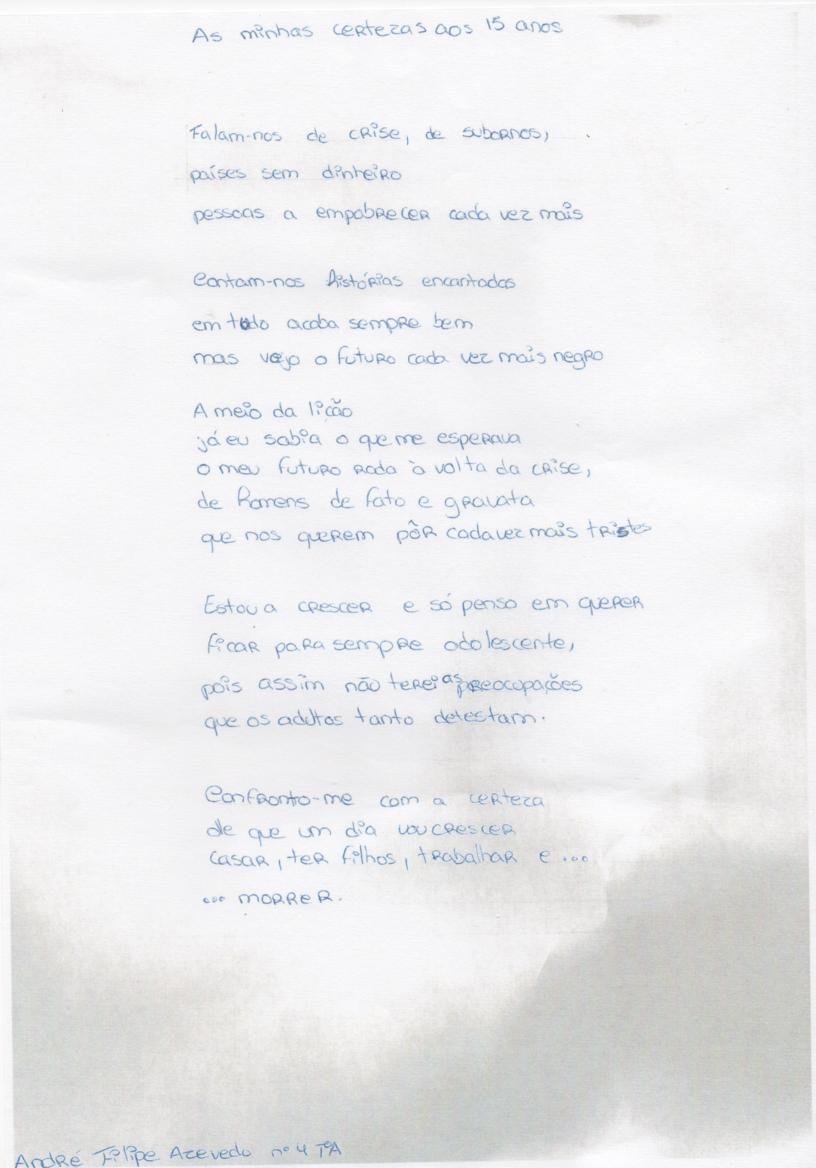 As minhas certezas aos 15 anos
Falam-nos de crise, de subornos,
países sem dinheiro
pessoas a empobrecer cada vez mais
Contam-nos histórias encantadas
em tudo acaba sempre bem
mas vejo o futuro cada vez mais negro
A meio da lição
já eu sabia o que me esperava
o meu futuro roda à volta da crise,
de homens de fato e gravata
que nos querem pôr cada vez mais tristes
Estou a crescer e só penso em querer
ficar para sempre adolescente,
pois assim não terei as preocupações
que os adultos tanto detestam.
Confronto-me com a certeza
de que um dia vou crescer
casar, ter filhos, trabalhar e ...
... morrer.
André Filipe Azevedo nº4 TºA